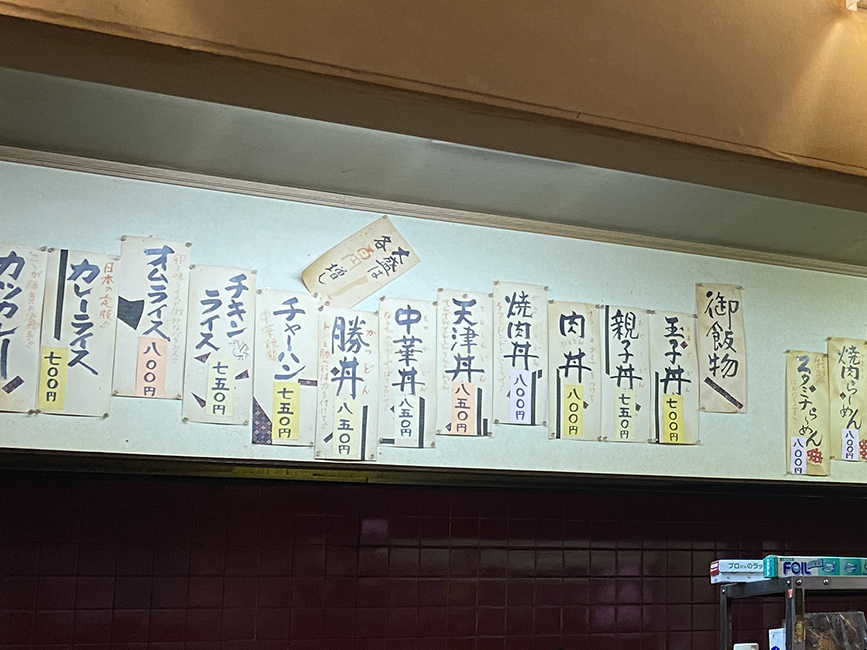 焼肉らーめん
八〇〇円
スタミナらーめん
八〇〇円
御飯物
玉子丼
七〇〇円
親子丼
七五〇円
肉丼
八〇〇円
焼肉丼
八〇〇円
天津丼
八五〇円
中華丼
八五〇円
大盛は
各百円増し
勝丼
かつどん
八五〇円
チャーハン
七五〇円
チキン
ライス
七五〇円
オムライス
八〇〇円
日本の定版!!
カレーライス
七〇〇円
カツカレー
プロ
FOIL